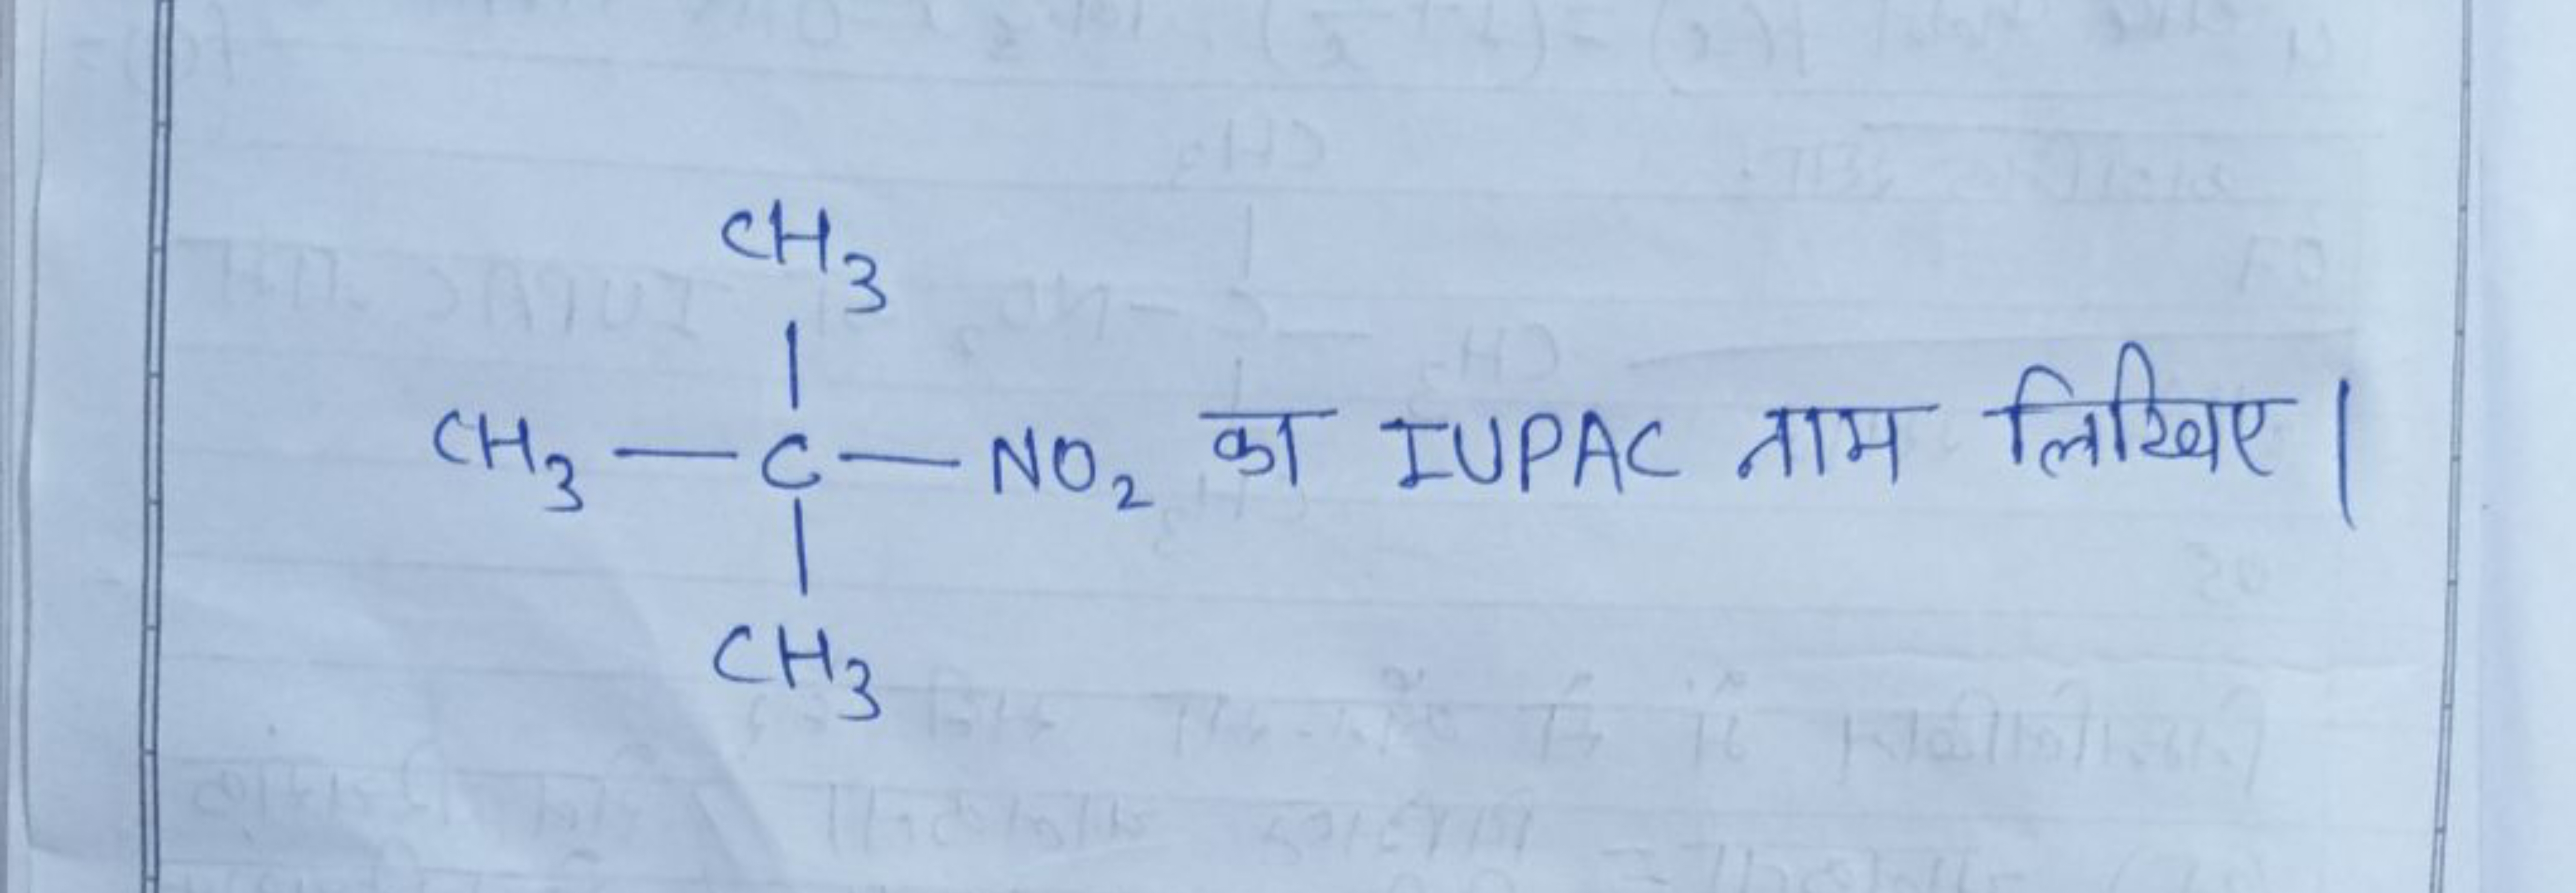 CH3
|
CH3 — C — NO2 का IUPAC नाम लिखिए |
|
CH3